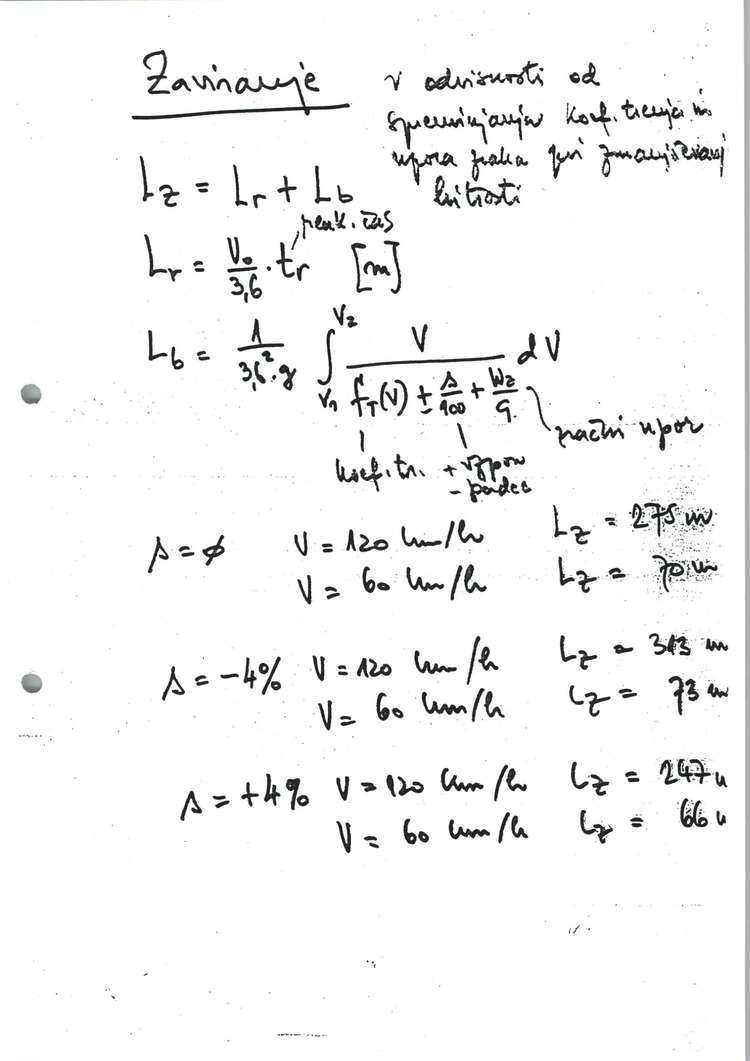 Zaviranje
v odvisnosti od
spreminjanja koef. trenja in
upora zraka pri zmanjševanj
hitrosti
Lz = Lr + Lb
reak. čas
Lr = V₀/3,6 · tr [m]
Lb = 1/(3,6²·g) ∫_{V₁}^{V₂} V/(f_T(V) ± s/100 + Wz/G) dV
zračni upor
koef. tr. + vzpon
- padec
s = ø V = 120 km/h Lz = 275 m
V = 60 km/h Lz = 70 m
s = -4% V = 120 km/h Lz = 313 m
V = 60 km/h Lz = 73 m
s = +4% V = 120 km/h Lz = 247 m
V = 60 km/h Lz = 66 m